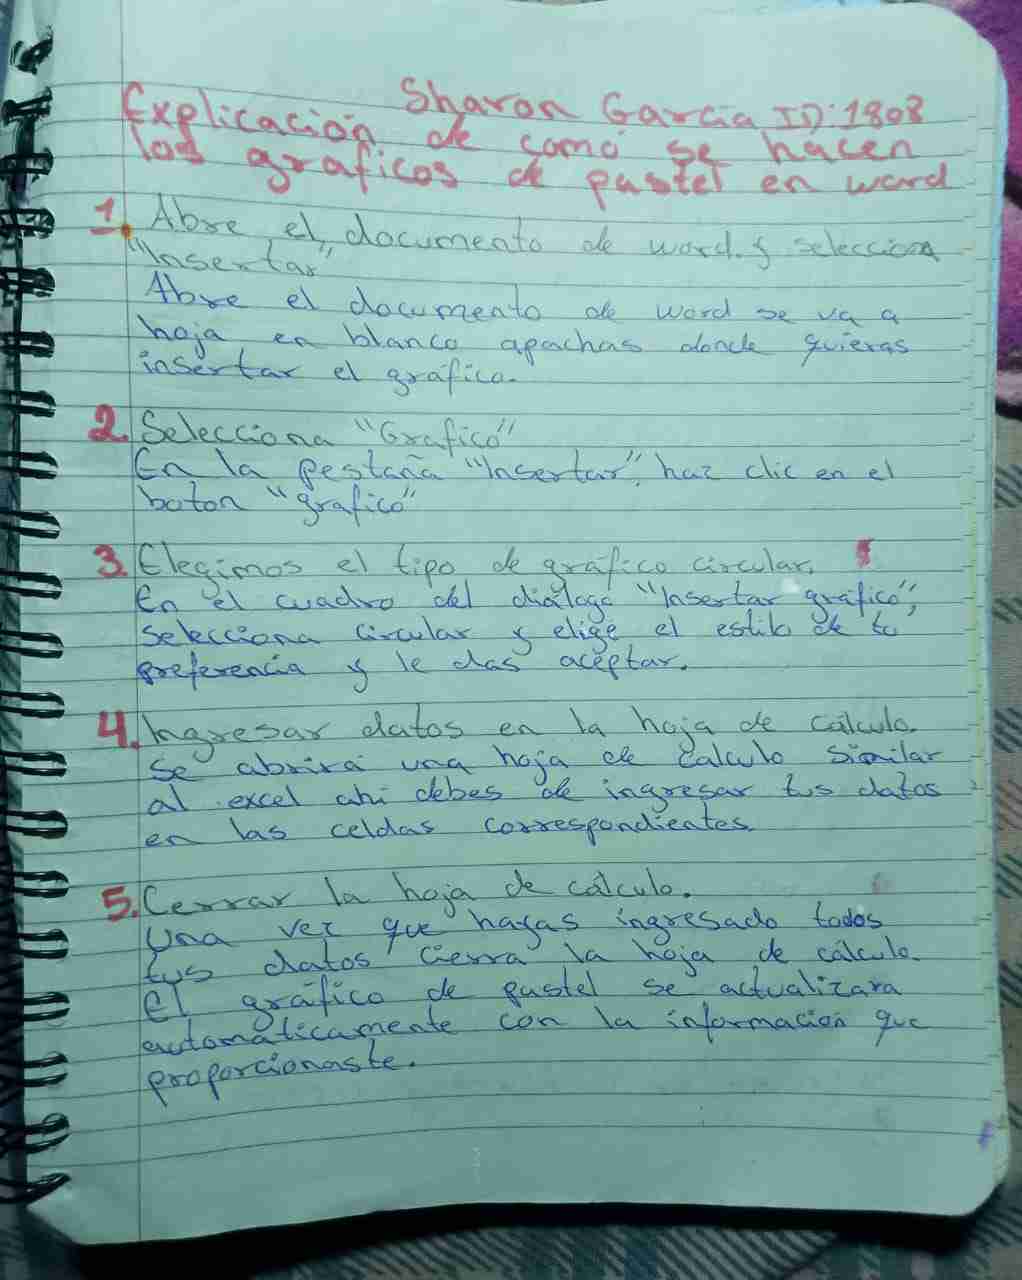 Sharon García ID:1808
Explicación de como se hacen
los gráficos de pastel en word
1. Abre el documento de word y selecciona
"Insertar"
Abre el documento de word se va a
hoja en blanco apachas donde quieras
insertar el gráfico.
2. Selecciona "Grafico"
En la pestaña "Insertar", haz clic en el
boton "grafico"
3. Elegimos el tipo de gráfico circular.
En el cuadro del diálogo "Insertar gráfico",
selecciona circular y elige el estilo de tu
preferencia y le das aceptar.
4. Ingresar datos en la hoja de cálculo.
Se abrirá una hoja de cálculo similar
al excel ahi debes de ingresar tus datos
en las celdas correspondientes.
5. Cerrar la hoja de cálculo.
Una vez que hayas ingresado todos
tus datos cierra la hoja de cálculo.
El gráfico de pastel se actualizara
automáticamente con la información que
proporcionaste.